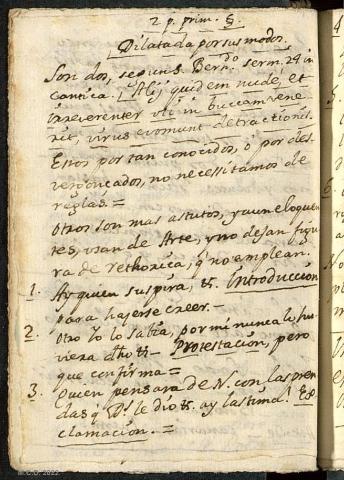 2 p. prim. §.
Dilatada por sus modos.
Son dos, segun S. Bern.do serm. 24 in
Cantica. Alij quidem nude, et
irreverenter uti in buccam vene
rit, virus evomunt detractionis.
Estos por tan conocidos, o por des
vergonçados, no necessitamos de
reglas. =
Otros son mas astutos, y aun eloquen
tes, usan de Arte, y no dejan figu
ra de rethorica, q no emplean.
1. Ay quien suspira, &. Introduccion
para hacerse creer. —
2. Otro Yo lo sabia, por mi nunca lo hu
viera dho &. — Protestacion, pero
que confirma =
3. Quien pensara de N. con las pren
das q Ds. le dio &. ay lastima! Ex
clamacion. =